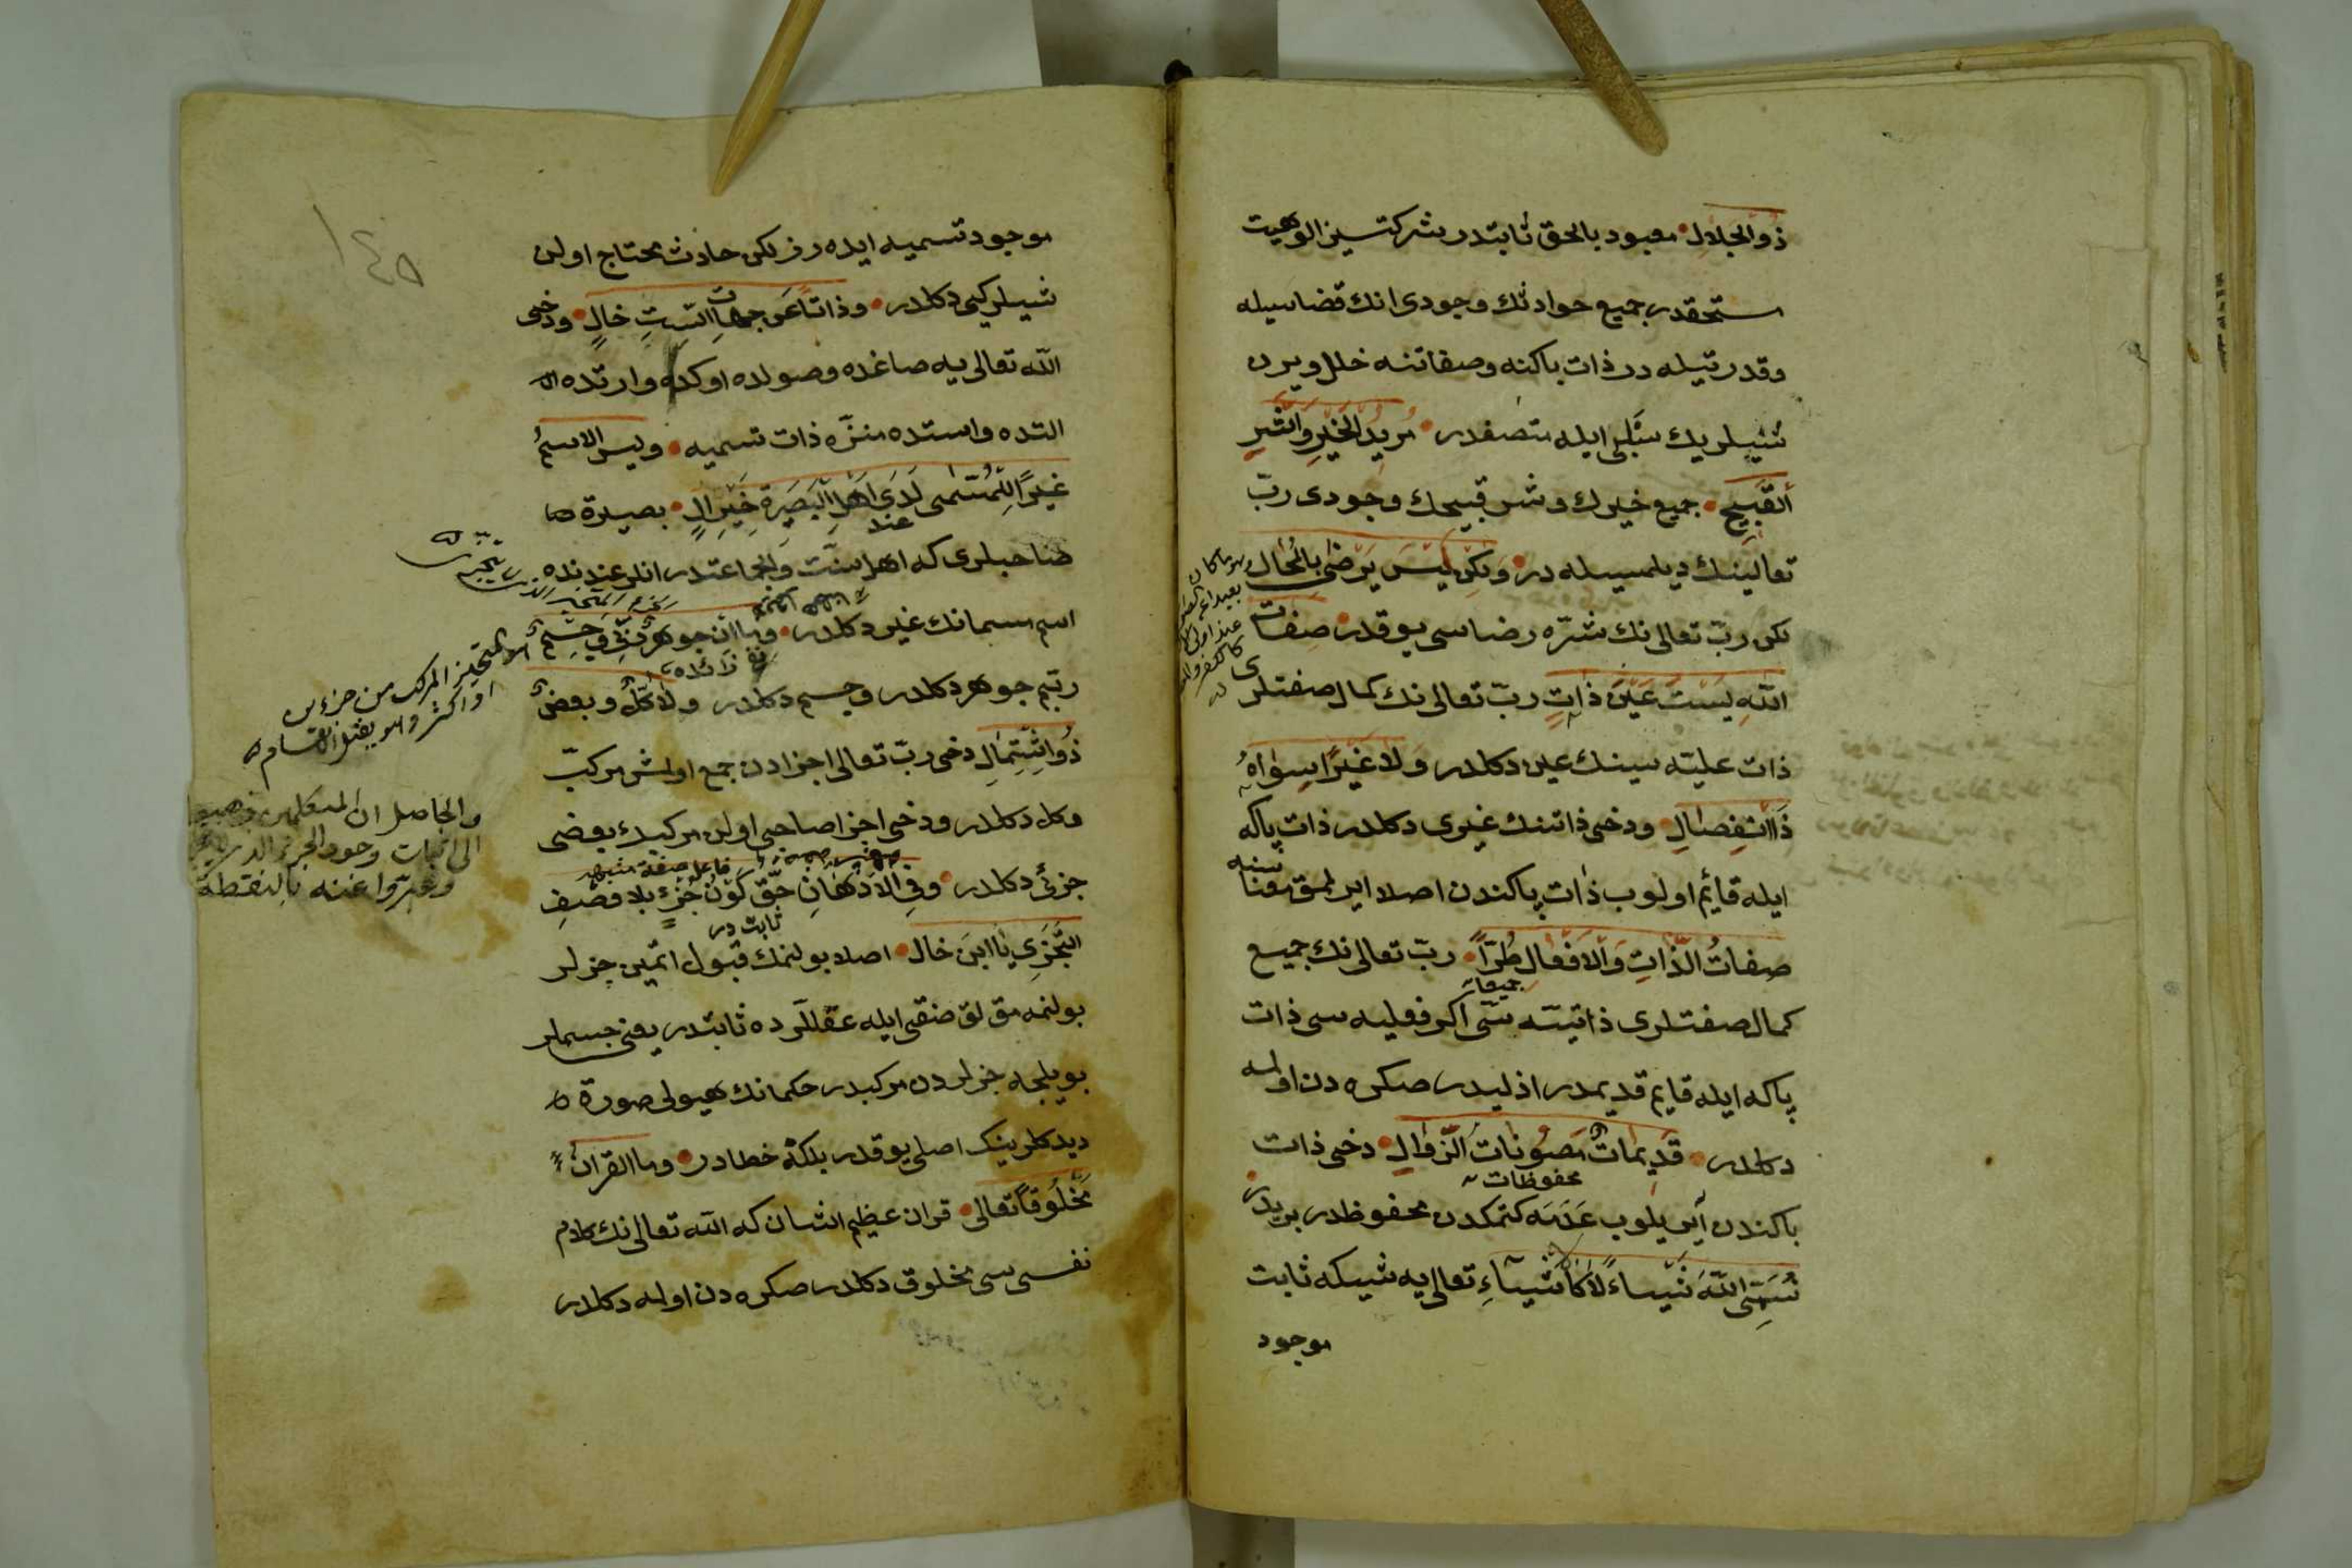 ذُوا الجَلالِ معبود بالحق ثابتدر شركتسيز الوهيت
مستحقدر جميع حوادثك وجودى انك قضاسيله
وقدرتيله در ذات پاكنه وصفاتنه خلل ويرن
شيلريك سلبى ايله متصفدر مُرِيدُ الخَيْرِ وَالشَّرِ
القَبِيحِ جميع خيرك وشر قبيحك وجودى ربّ
تعالينك ديلمسيله در وَلكِن لَيْسَ يَرْضٰى بِالْمُحَالِ
لكن ربّ تعالى نك شرّه رضاسى يوقدر صِفَاتُ
اللهِ لَيْسَتْ عَيْنَ ذَاتٍ ربّ تعالى نك كمال صفتلرى
ذات عليّه سينك عين دكلدر وَلا غَيْرًا سِوَاهُ
ذَا انْفِصَالِ ودخى ذاتنك غيرى دكلدر ذات پاكه
ايله قائم اولوب ذات پاكندن اصلا ايرلمق
صِفَاتُ الذَّاتِ وَالاَفْعَالِ طُرًّا ربّ تعالى نك جميع
جميعا
كمال صفتلرى ذاتيّه سى اكر فعليه سى ذات
پاكه ايله قايم قديمدر ازليدر صكره دن اولمه
دكلدر قَدِيمَاتٌ مَصُونَاتُ الزَّوَالِ دخى ذات
محفوظات
پاكندن ايريلوب عَدَمَه كتمكدن محفوظدر بريدر
نُسَمِّى اللهَ شَيْئاءً لَا كَاَشْيَاءِ تعالى يه شىئكه ثابت
موجود
موجود تسميه ايده رز لكن حادث محتاج اولن
شيلر كبى دكلدر وذاتًا عَن جِهَاتِ السِّتِّ خَالِ ودخى
الله تعالى يه صاغده وصولده اوكده واردّه
التده واستده منزّه ذات تسميه وليس الاسمُ
غَيْرًا لِلْمُسَمّى لَدَى اَهْلِ الْبَصِيرَةِ خَيْرِ الِ بصيرة
عند
صاحبلرى كه اهل سنّت والجماعتدر انلر عندنده
اسم مسمانك غيرى دكلدر وَمَا اِنْ جَوهَرٌ رَبِّى وَجِسْمٌ
زائده
ربّم جوهر دكلدر وجسم دكلدر ولا كُلٌّ وبعضٌ
ذُو اشْتِمَالِ دخى ربّ تعالى اجزادن جمع اولمش مركبّ
وكل دكلدر ودخى اجزا صاحبى اولن مركبدك بعضى
جزئى دكلدر وفِى الاَذْهَانِ حَقٌّ كَوْنُ جُزْءٍ بلا وَصْفِ
ثابت در
التَّجَزِّى يَا ابنَ خَال اصلا بولنمك قبول اتمين جزلر
بولنمه مق لق صفتى ايله عقللرده ثابتدر يعنى جسملر
بويلجه جزلردن مركبدر حكمانك هيولى صورة
ديدكلرينك اصلى يوقدر بلكه خطادر وما القرانُ
مَخْلُوقًا تَعالى قران عظيم الشان كه الله تعالى نك كلام
نفسى سى مخلوق دكلدر صكره دن اولمه دكلدر
المتحيز المركب من جزءين
او اكثر وهو يقبل الانقسام
والحاصل ان المتكلمين ذهبوا
الى اثبات وجود الجزء الذى
وعبّروا عنه بالنقطة